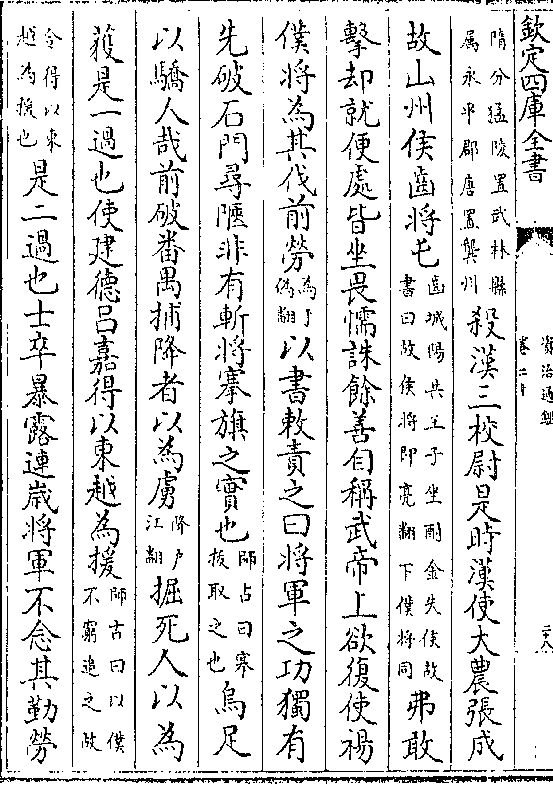 欽定四庫全書
資治通鑑
卷二十
二十八
隋分猛陵置武林縣
屬永平郡唐置龔州
殺漢三校尉是時漢使大農張成
故山州侯齒將屯
齒城陽共王子坐酎金失侯故
書曰故侯將即亮翻下僕將同
弗敢
擊却就便處皆坐畏懦誅餘善自稱武帝上欲復使楊
僕將為其伐前勞
為于
偽翻
以書敕責之曰將軍之功獨有
先破石門尋陿非有斬將搴旗之實也
師古曰搴
拔取之也
烏足
以驕人哉前破番禺捕降者以為虜
降戶
江翻
掘死人以為
獲是一過也使建德呂嘉得以東越為援
師古曰以僕
不窮追之故
令得以東
越為援也
是二過也士卒暴露連歲將軍不念其勤勞